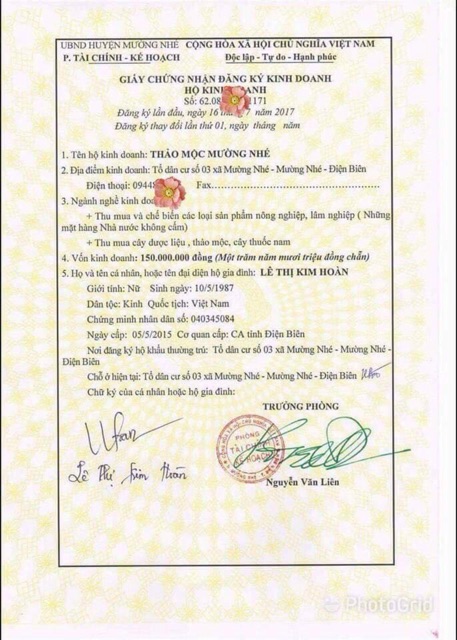 UBND HUYỆN MƯỜNG NHÉ CỘNG HÒA XÃ HỘI CHỦ NGHĨA VIỆT NAM
P. TÀI CHÍNH - KẾ HOẠCH Độc lập - Tự do - Hạnh phúc
GIẤY CHỨNG NHẬN ĐĂNG KÝ KINH DOANH
HỘ KINH DOANH
Số: 62.08 1171
Đăng ký lần đầu, ngày 16 7 năm 2017
Đăng ký thay đổi lần thứ 01, ngày tháng năm
1. Tên hộ kinh doanh: THẢO MỘC MƯỜNG NHÉ
2. Địa điểm kinh doanh: Tổ dân cư số 03 xã Mường Nhé - Mường Nhé - Điện Biên
Điện thoại: 0944 Fax
3. Ngành nghề kinh doanh
+ Thu mua và chế biến các loại sản phẩm nông nghiệp, lâm nghiệp ( Những
mặt hàng Nhà nước không cấm)
+ Thu mua cây dược liệu , thảo mộc, cây thuốc nam
4. Vốn kinh doanh: 150.000.000 đồng (Một trăm năm mươi triệu đồng chẵn)
5. Họ và tên cá nhân, hoặc tên đại diện hộ gia đình: LÊ THỊ KIM HOÀN
Giới tính: Nữ Sinh ngày: 10/5/1987
Dân tộc: Kinh Quốc tịch: Việt Nam
Chứng minh nhân dân số: 040345084
Ngày cấp: 05/5/2015 Cơ quan cấp: CA tỉnh Điện Biên
Nơi đăng ký hộ khẩu thường trú: Tổ dân cư số 03 xã Mường Nhé - Mường Nhé -
Điện Biên
Chỗ ở hiện tại: Tổ dân cư số 03 xã Mường Nhé - Mường Nhé - Điện Biên
Chữ ký của cá nhân hoặc hộ gia đình:
TRƯỞNG PHÒNG
PHÒNG
TÀI CHÍNH
KẾ HOẠCH
Lê Thị Kim Hoàn
Nguyễn Văn Liên
PhotoGrid